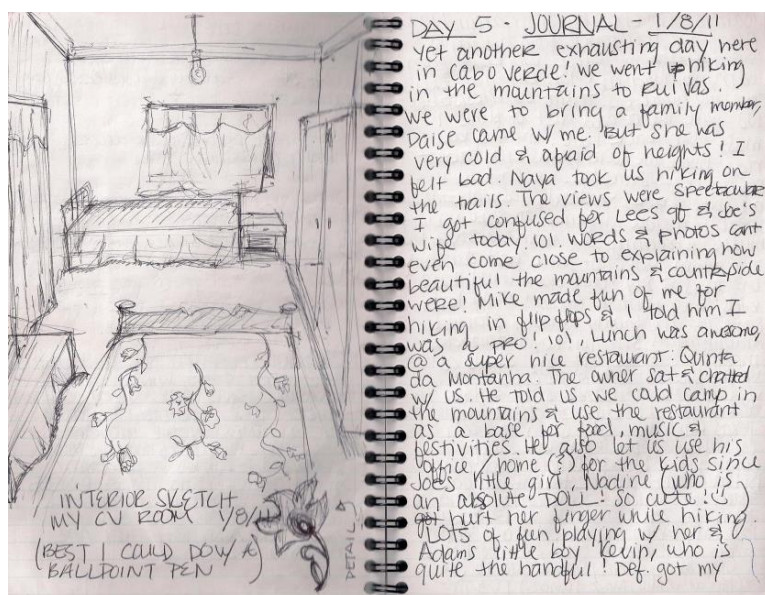 INTERIOR SKETCH
MY CV ROOM 1/8/11
(BEST I COULD DO W/ A)
BALLPOINT PEN
DETAIL
DAY 5 - JOURNAL - 1/8/11
yet another exhausting day here
in Cabo Verde! We went hiking
in the mountains to Rui Vas.
We were to bring a family member,
Daise came w/ me. But she was
very cold & afraid of heights! I
felt bad. Naya took us hiking on
the trails. The views were spectacular
I got confused for Lees gf & Joe's
wife today. lol. Words & photos cant
even come close to explaining how
beautiful the mountains & countryside
were! Mike made fun of me for
hiking in flip flops & I told him I
was a pro! lol, Lunch was awesome,
@ a super nice restaurant: Quinta
da Montanha. The owner sat & chatted
w/ us. He told us we could camp in
the mountains & use the restaurant
as a base for food, music &
festivities. He also let us use his
office/home (?) for the kids since
Joes little girl, Nadine (who is
an absolute DOLL! So cute!)
hurt her finger while hiking.
Lots of fun playing w/ her &
Adams little boy Kevin, who is
quite the handful! Def. got my